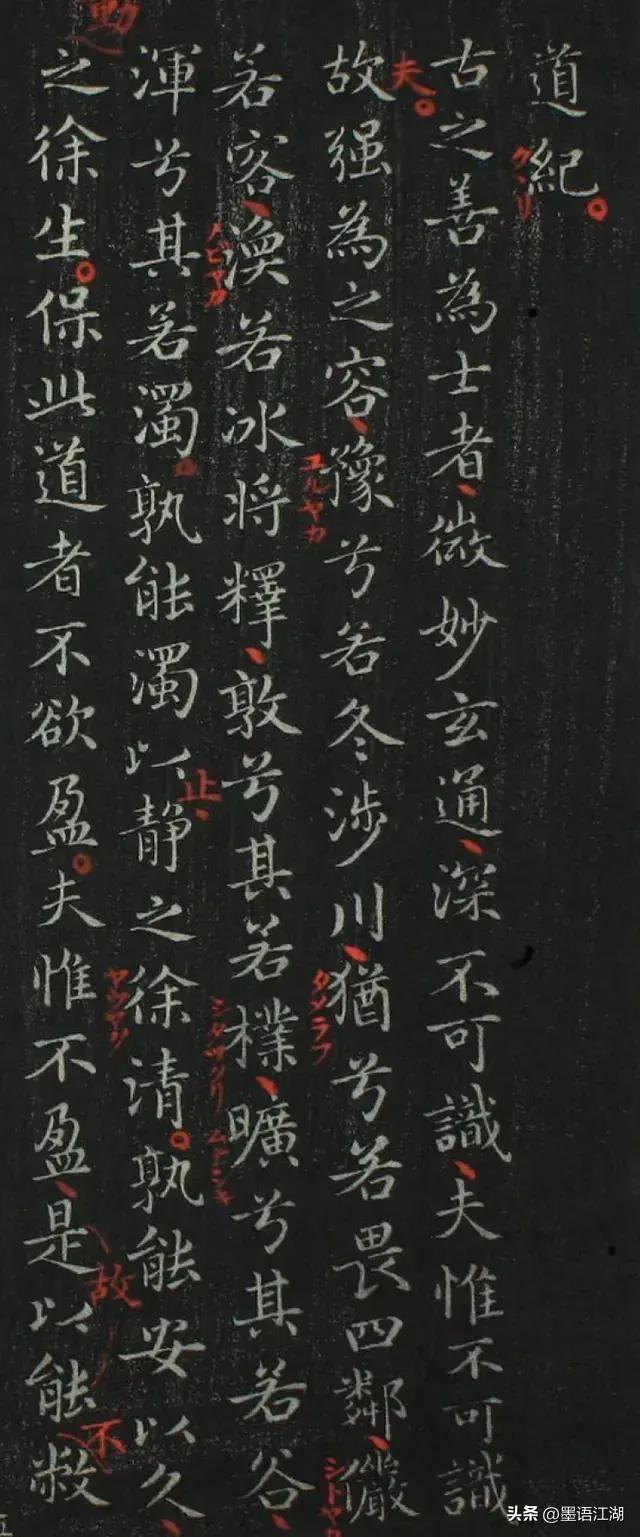 道紀
古之善為士者微妙玄通深不可識夫惟不可識
故强為之容豫兮若冬涉川猶兮若畏四鄰儼
若容渙若冰将釋敦兮其若樸曠兮其若谷
渾兮其若濁孰能濁以静之徐清孰能安以久
之徐生保此道者不欲盈夫惟不盈是以能敝
夫
ユルヤカ
タメラフ
シドヤカ
止
動
故
不
头条 @墨语江湖